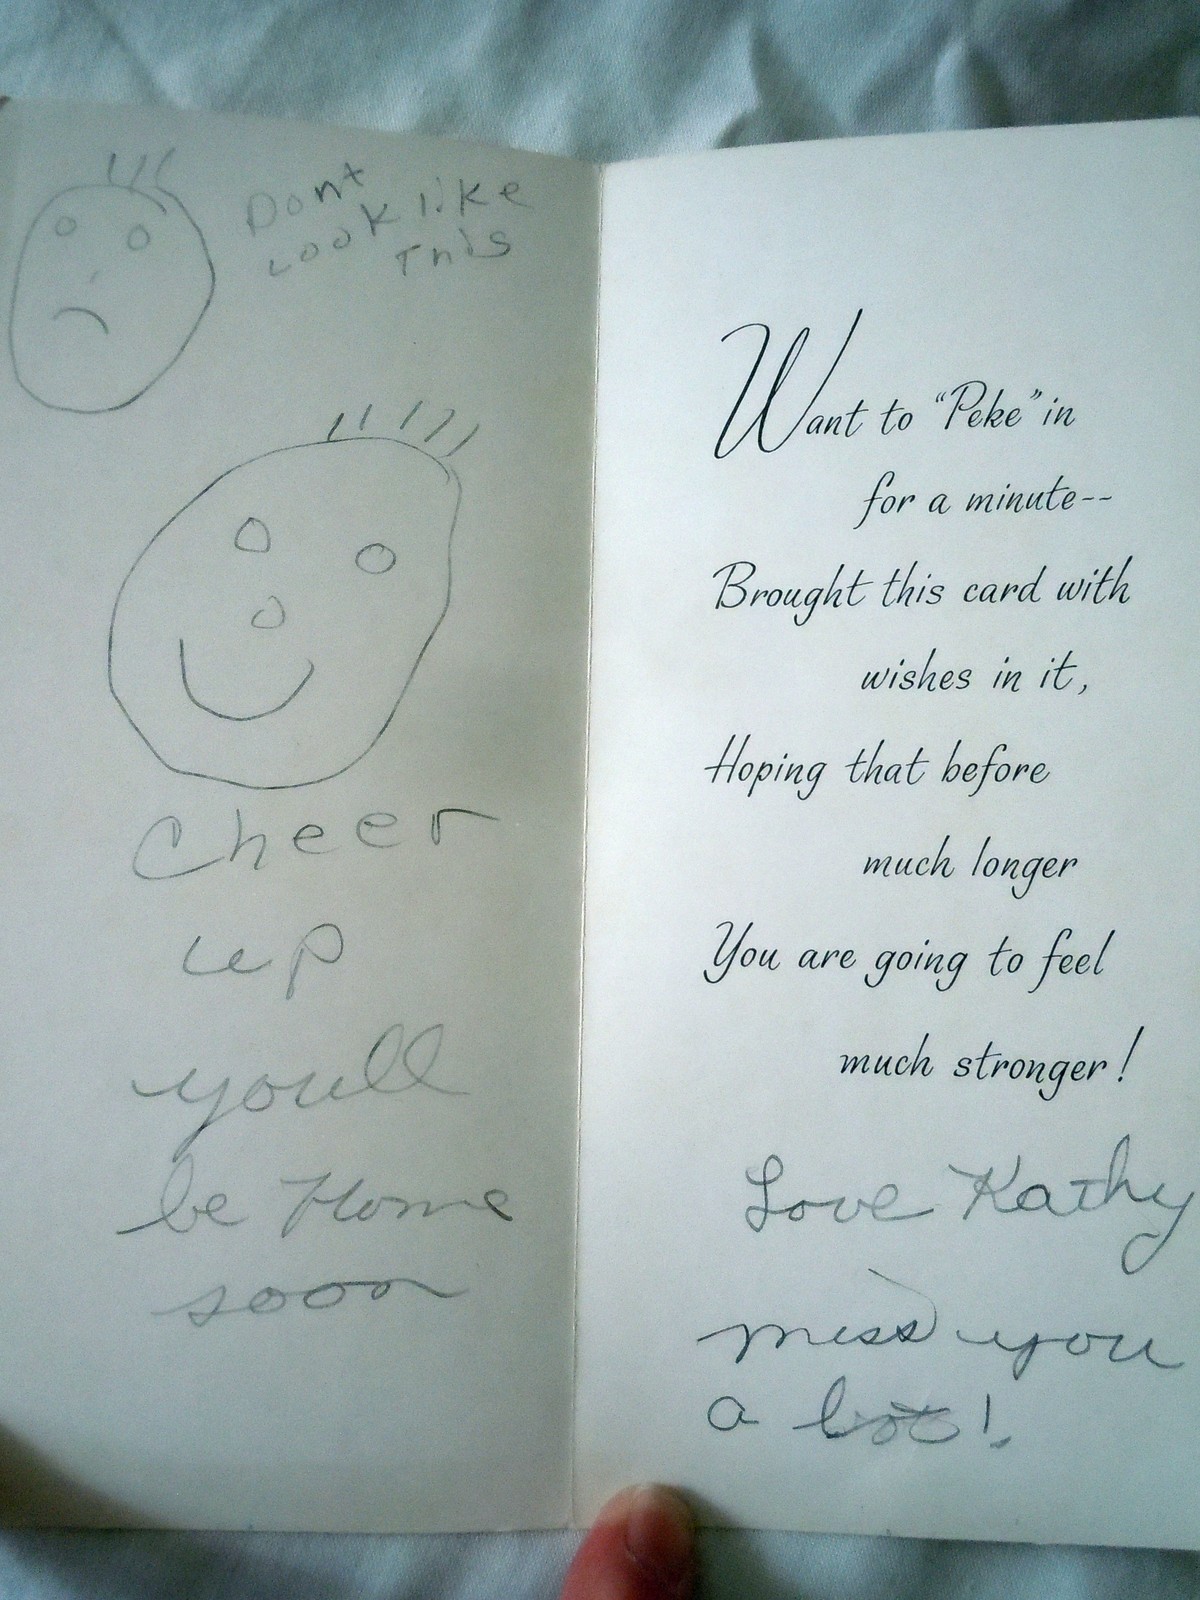 Dont
Look like
This
Cheer
up
youll
be Home
soon
Want to “Peke” in
for a minute--
Brought this card with
wishes in it,
Hoping that before
much longer
You are going to feel
much stronger!
Love Kathy
miss you
a lot!